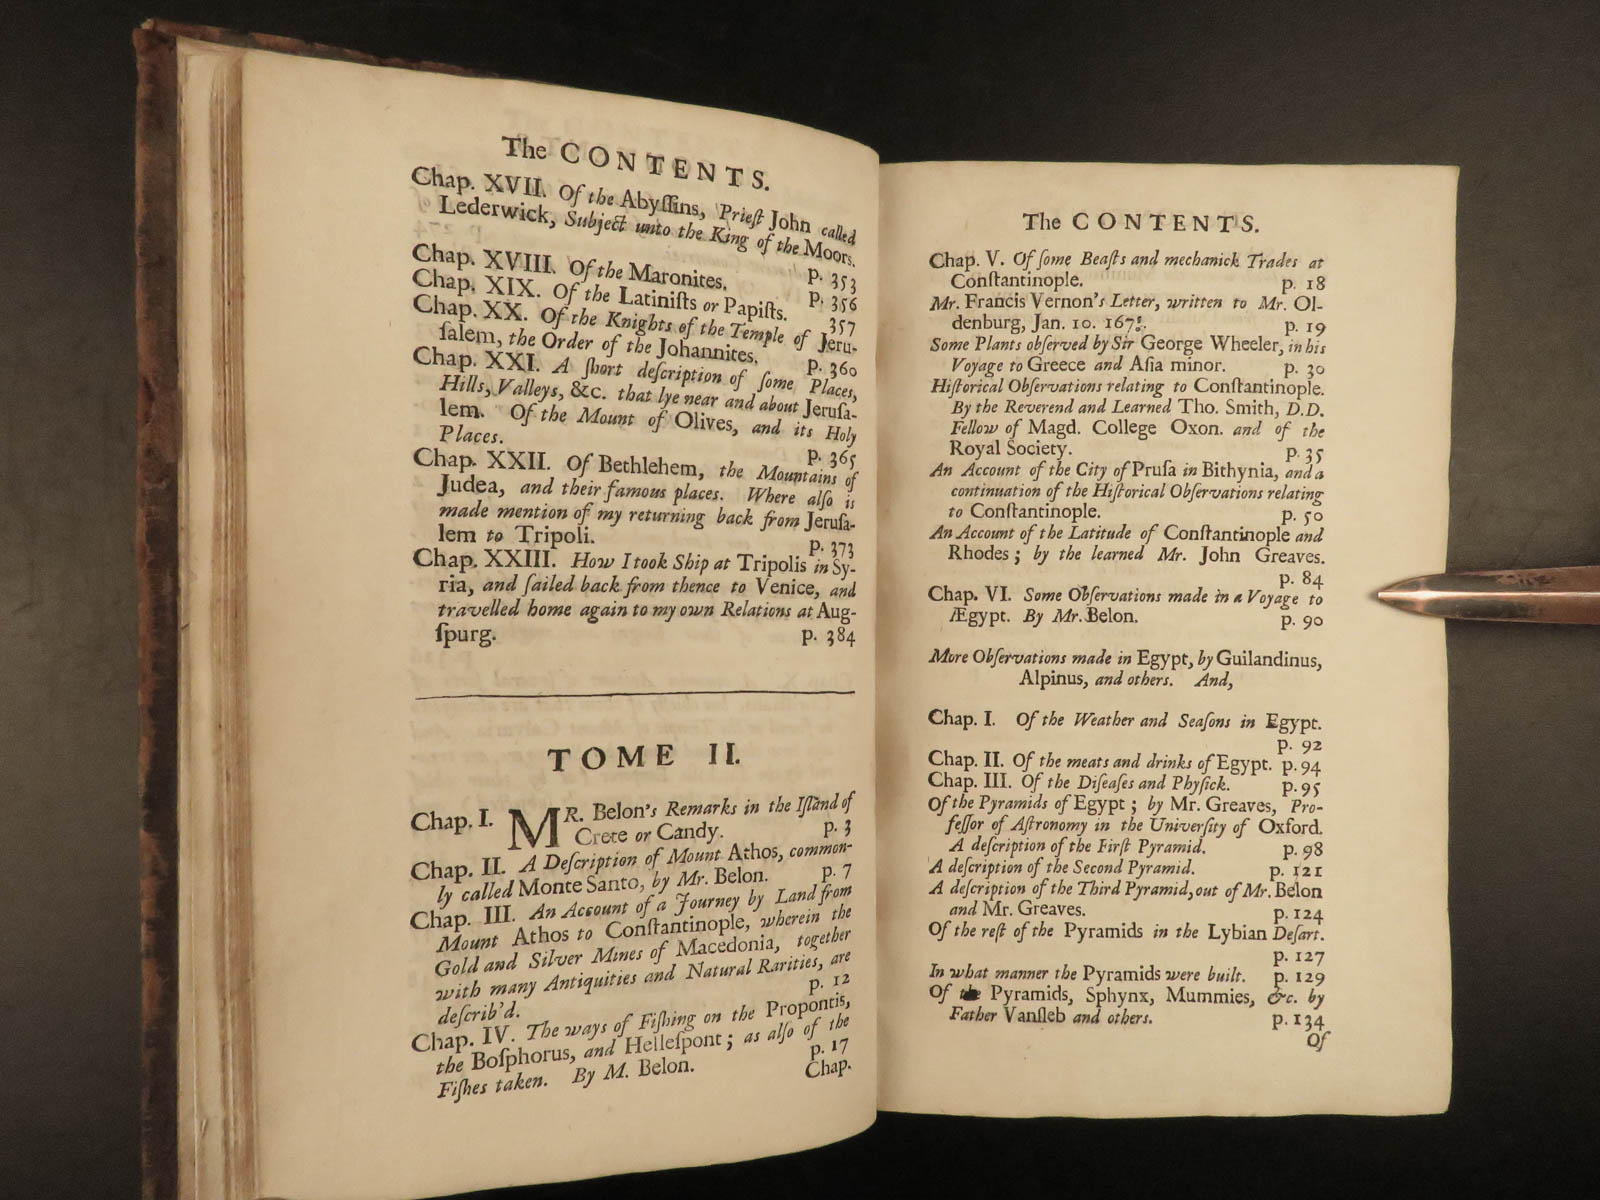 The CONTENTS.
Chap. XVII. Of the Abyſſins, Prieſt John called
Lederwick, Subject unto the King of the Moors.
p. 353
Chap. XVIII. Of the Maronites. p. 356
Chap. XIX. Of the Latiniſts or Papiſts. 357
Chap. XX. Of the Knights of the Temple of Jeru-
ſalem, the Order of the Johannites. p. 360
Chap. XXI. A ſhort deſcription of ſome Places,
Hills, Valleys, &c. that lye near and about Jeruſa-
lem. Of the Mount of Olives, and its Holy
Places. p. 365
Chap. XXII. Of Bethlehem, the Mountains of
Judea, and their famous places. Where alſo is
made mention of my returning back from Jeruſa-
lem to Tripoli. p. 373
Chap. XXIII. How I took Ship at Tripolis in Sy-
ria, and ſailed back from thence to Venice, and
travelled home again to my own Relations at Aug-
ſpurg. p. 384
TOME II.
Chap. I. MR. Belon's Remarks in the Iſland of
Crete or Candy. p. 3
Chap. II. A Deſcription of Mount Athos, common-
ly called Monte Santo, by Mr. Belon. p. 7
Chap. III. An Account of a Journey by Land from
Mount Athos to Conſtantinople, wherein the
Gold and Silver Mines of Macedonia, together
with many Antiquities and Natural Rarities, are
deſcrib'd. p. 12
Chap. IV. The ways of Fiſhing on the Propontis,
the Boſphorus, and Helleſpont; as alſo of the
Fiſhes taken. By M. Belon. p. 17
Chap.
The CONTENTS.
Chap. V. Of ſome Beaſts and mechanick Trades at
Conſtantinople. p. 18
Mr. Francis Vernon's Letter, written to Mr. Ol-
denburg, Jan. 10. p. 19
Some Plants obſerved by Sir George Wheeler, in his
Voyage to Greece and Aſia minor. p. 30
Hiſtorical Obſervations relating to Conſtantinople.
By the Reverend and Learned Tho. Smith, D.D.
Fellow of Magd. College Oxon. and of the
Royal Society. p. 35
An Account of the City of Pruſa in Bithynia, and a
continuation of the Hiſtorical Obſervations relating
to Conſtantinople. p. 50
An Account of the Latitude of Conſtantinople and
Rhodes; by the learned Mr. John Greaves.
p. 84
Chap. VI. Some Obſervations made in a Voyage to
Ægypt. By Mr. Belon. p. 90
More Obſervations made in Egypt, by Guilandinus,
Alpinus, and others. And,
Chap. I. Of the Weather and Seaſons in Egypt.
p. 92
Chap. II. Of the meats and drinks of Egypt. p. 94
Chap. III. Of the Diſeaſes and Phyſick. p. 95
Of the Pyramids of Egypt; by Mr. Greaves, Pro-
feſſor of Aſtronomy in the Univerſity of Oxford.
A deſcription of the Firſt Pyramid. p. 98
A deſcription of the Second Pyramid. p. 121
A deſcription of the Third Pyramid, out of Mr. Belon
and Mr. Greaves. p. 124
Of the reſt of the Pyramids in the Lybian Deſart.
p. 127
In what manner the Pyramids were built. p. 129
Of the Pyramids, Sphynx, Mummies, &c. by
Father Vanſleb and others. p. 134
Of